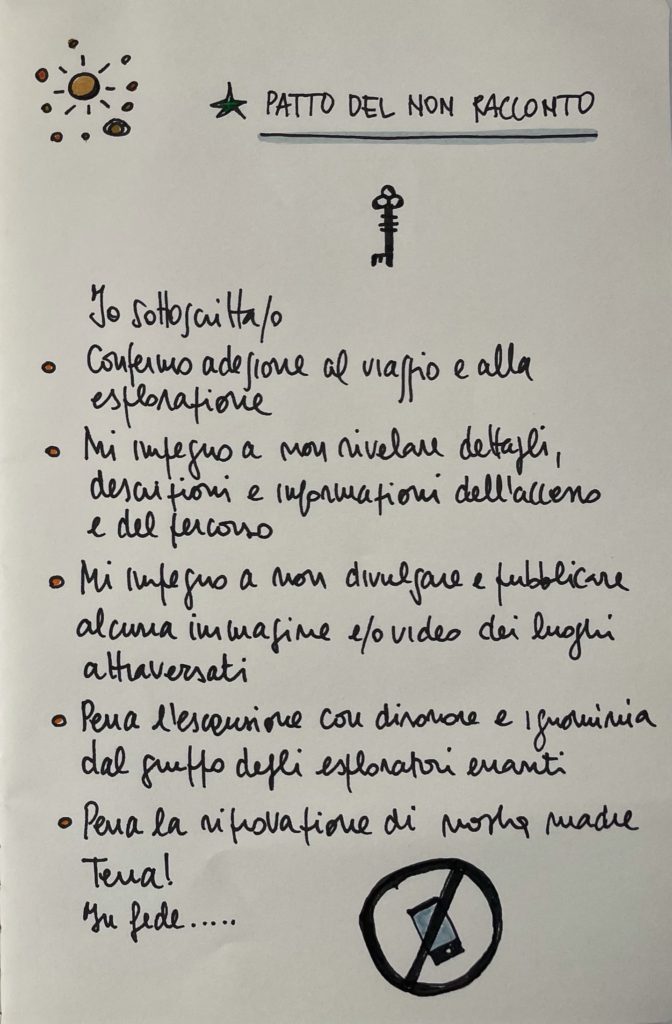 PATTO DEL NON RACCONTO
Io sottoscritta/o
Confermo adesione al viaggio e alla
esplorazione
Mi impegno a non rivelare dettagli,
descrizioni e informazioni dell'accesso
e del percorso
Mi impegno a non divulgare e pubblicare
alcuna immagine e/o video dei luoghi
attraversati
Pena l'escussione con disonore e ignominia
dal gruppo degli esploratori erranti
Pena la riprovazione di nostra madre
Terra!
In fede.....